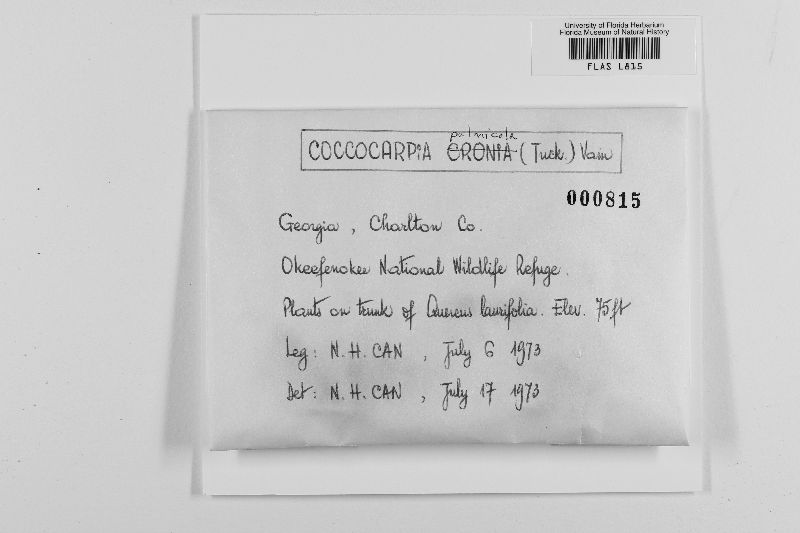 University of Florida Herbarium
Florida Museum of Natural History
FLAS L815
palmicola
COCCOCARPIA CRONIA (Tuck.) Vain
000815
Georgia, Charlton Co.
Okeefenokee National Wildlife Refuge.
Plants on trunk of Quercus laurifolia. Elev. 75ft
Leg: N.H. CAN, July 6 1973
Det: N.H. CAN, July 17 1973